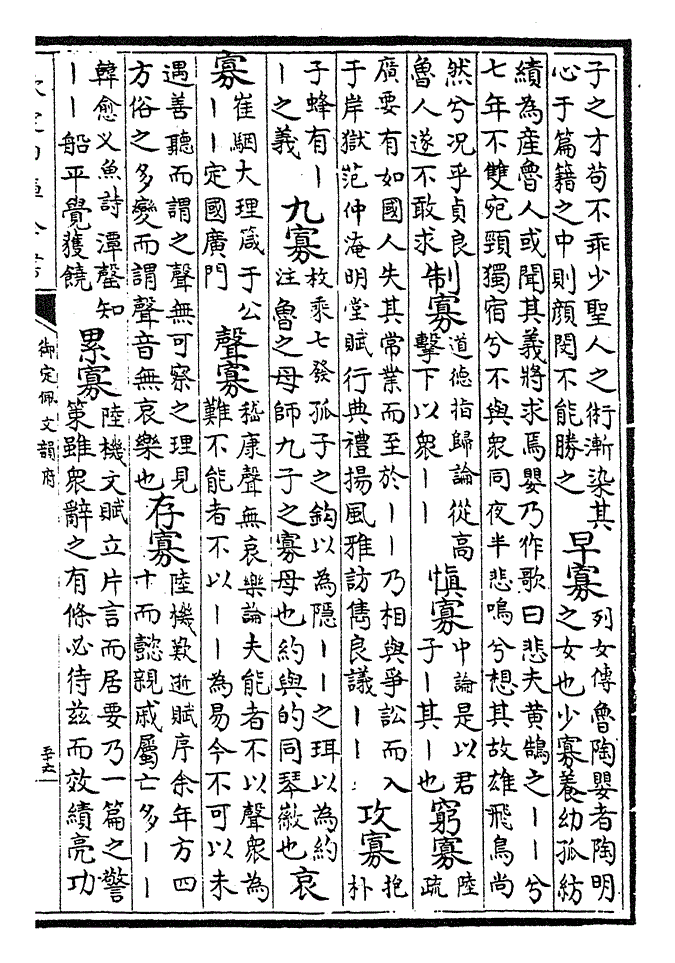 子之才苟不乖少聖人之術漸染其
心于篇籍之中則顏閔不能勝之
早寡
列女傳魯陶嬰者陶明
之女也少寡養幼孤紡
績為產魯人或聞其義將求焉嬰乃作歌曰悲夫黃鵠之——兮
七年不雙宛頸獨宿兮不與衆同夜半悲鳴兮想其故雄飛鳥尚
然兮況乎貞良
魯人遂不敢求
制寡
道德指歸論從高
擊下以衆——
慎寡
中論是以君
子—其—也
窮寡
陸
疏
廣要有如國人失其常業而至於——乃相與爭訟而入
于岸獄范仲淹明堂賦行典禮揚風雅訪雋良議——
攻寡
抱
朴
子蜂有—
—之義
九寡
枚乘七發孤子之鈎以為隱——之珥以為約
注魯之母師九子之寡母也約與的同琴徽也
哀
寡
崔駰大理箴于公
——定國廣門
聲寡
嵇康聲無哀樂論夫能者不以聲衆為
難不能者不以——為易今不可以未
遇善聽而謂之聲無可察之理見
方俗之多變而謂聲音無哀樂也
存寡
陸機歎逝賦序余年方四
十而懿親戚屬亡多——
韓愈义魚詩潭罄知
——船平覺獲饒
累寡
陸機文賦立片言而居要乃一篇之警
策雖衆辭之有條必待茲而效績亮功
御定佩文韻府
五十六